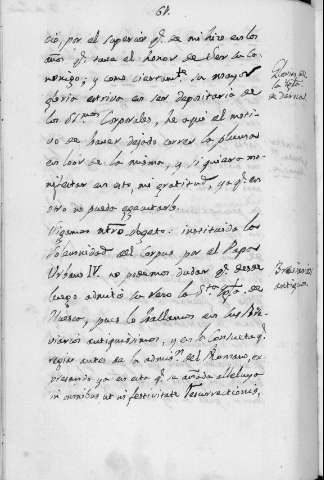 61.
cio, por el superior q.e de mi hizo en los
años q.e tuve el honor de ser su Ca
nonigo; y como ciertam.te su mayor
gloria estriva en ser depositaria de
los SS.mos Corporales, he aqui el moti
vo de haver dejado correr la pluma
en loor de la misma, y si quiera ma
nifestar en esto, mi gratitud, ya q.e en
otro no puedo egecutarlo.
Sigamos ntro. obgeto: instituida la
Solemnidad del Corpus por el Papa
Urbano IV. no podemos dudar q.e desde
luego admitió su rezo la S.ta Ygl.a de
Huesca, pues lo hallamos en sus Bre
viarios antiquisimos, y en la Consueta q.e
regia antes de la admis.n del Romano, ex
presando ya en esta q.e se añada alleluya
in omnibus ut in festivitate Resurrectionis,
Glorias de
la Ygl.a
de Daroca.
Breviarios
antiguos.